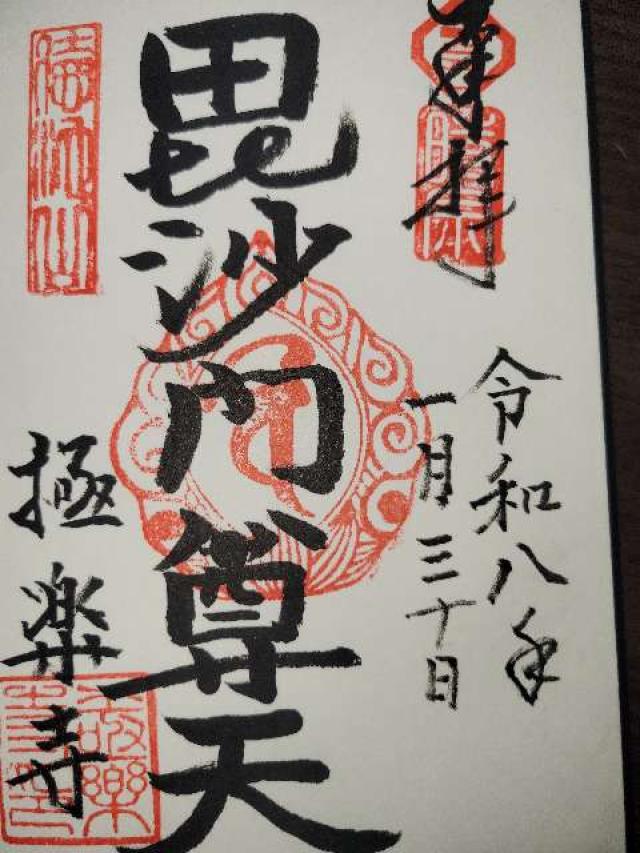 奉拝
令和八年
一月三十日
毘沙門尊天
極楽寺